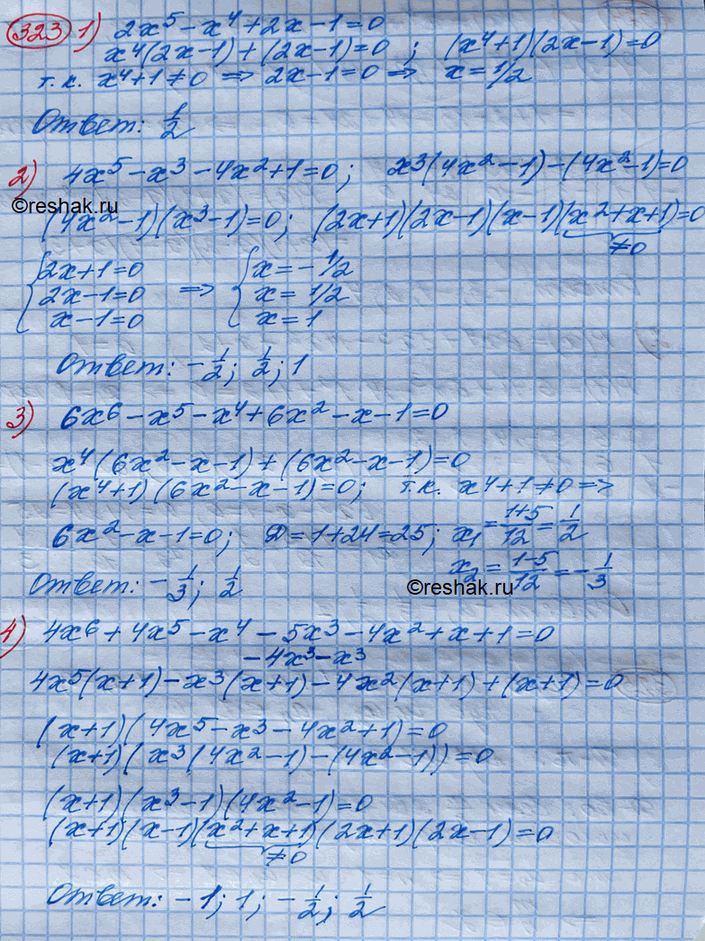 323 1) 2x⁵ - x⁴ + 2x - 1 = 0
x⁴(2x-1) + (2x-1) = 0 ; (x⁴+1)(2x-1) = 0
т.к. x⁴+1 ≠ 0 ⇒ 2x-1 = 0 ⇒ x = 1/2
Ответ: 1/2
2) 4x⁵ - x³ - 4x² + 1 = 0; x³(4x²-1) - (4x²-1) = 0
©reshak.ru
(4x²-1)(x³-1) = 0; (2x+1)(2x-1)(x-1)(x²+x+1) = 0
≠0
{ 2x+1=0 ⇒ { x = -1/2
2x-1=0 x = 1/2
x-1=0 x = 1
Ответ: -1/2; 1/2; 1
3) 6x⁶ - x⁵ - x⁴ + 6x² - x - 1 = 0
x⁴(6x²-x-1) + (6x²-x-1) = 0
(x⁴+1)(6x²-x-1) = 0; т.к. x⁴+1 ≠ 0 ⇒
6x²-x-1=0; D = 1+24 = 25; x₁ = (1+5)/12 = 1/2
x₂ = (1-5)/12 = -1/3
Ответ: -1/3; 1/2
©reshak.ru
4) 4x⁶ + 4x⁵ - x⁴ - 5x³ - 4x² + x + 1 = 0
-4x³ - x³
4x⁵(x+1) - x³(x+1) - 4x²(x+1) + (x+1) = 0
(x+1)(4x⁵ - x³ - 4x² + 1) = 0
(x+1)(x³(4x²-1) - (4x²-1)) = 0
(x+1)(x³-1)(4x²-1) = 0
(x+1)(x-1)(x²+x+1)(2x+1)(2x-1) = 0
≠0
Ответ: -1; 1; -1/2; 1/2